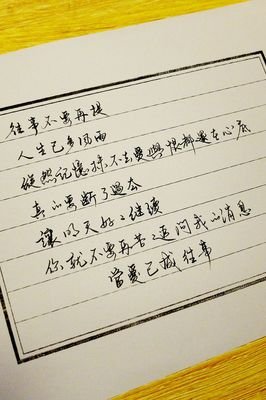 往事不要再提
人生已多风雨
纵然记忆抹不去爱与恨都还在心底
真的要断了过去
讓明天好好继续
你就不要再苦苦追问我的消息
当爱已成往事